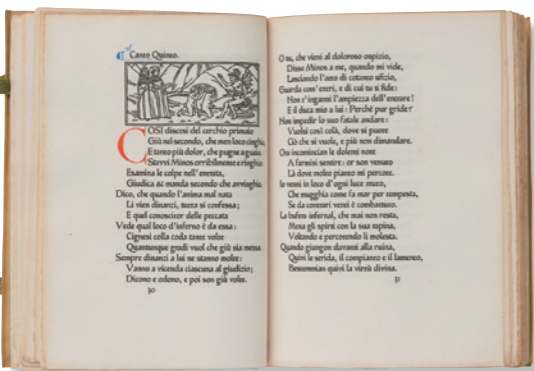 Canto Quinto.
COSÌ discesi del cerchio primaio
Giù nel secondo, che men loco cinghia,
E tanto più dolor, che pugne a guaio.
Stavvi Minos orribilmente e ringhia:
Esamina le colpe nell' entrata,
Giudica & manda secondo che avvinghia.
Dico, che quando l'anima mal nata
Li vien dinanzi, tutta si confessa;
E quel conoscitor delle peccata
Vede qual loco d'inferno è da essa:
Cignesi colla coda tante volte
Quantunque gradi vuol che giù sia messa.
Sempre dinanzi a lui ne stanno molte:
Vanno a vicenda ciascuna al giudizio;
Dicono e odono, e poi son giù volte.
30
O tu, che vieni al doloroso ospizio,
Disse Minos a me, quando mi vide,
Lasciando l'atto di cotanto ufizio,
Guarda com' entri, e di cui tu ti fide:
Non t' inganni l'ampiezza dell' entrare!
E il duca mio a lui: Perchè pur gride?
Non impedir lo suo fatale andare:
Vuolsi così colà, dove si puote
Ciò che si vuole, e più non dimandare.
Ora incomincian le dolenti note
A farmisi sentire: or son venuto
Là dove molto pianto mi percote.
Io venni in loco d'ogni luce muto,
Che mugghia come fa mar per tempesta,
Se da contrari venti è combattuto.
La bufera infernal, che mai non resta,
Mena gli spirti con la sua rapina,
Voltando e percotendo li molesta.
Quando giungon davanti alla ruina,
Quivi le strida, il compianto e il lamento,
Bestemmian quivi la virtù divina.
31